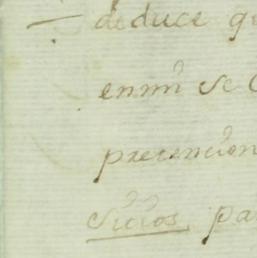 deduce q
en mi se
precencion
Sitios pa